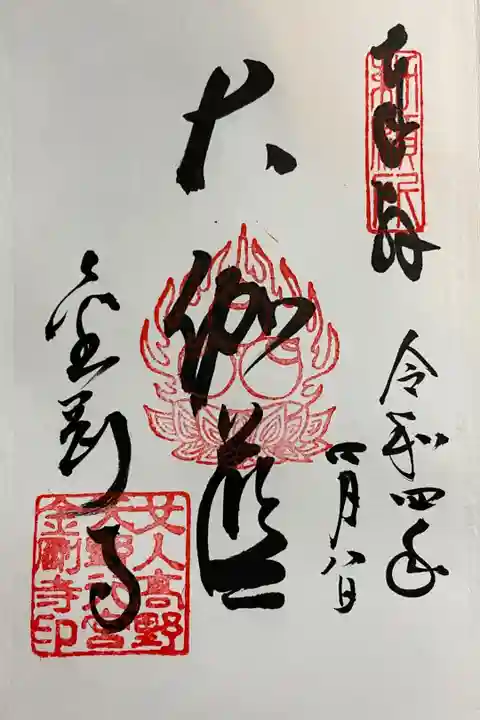 奉拝
新願所
令和四年
四月八日
大伽藍
金剛寺
女人高野
天野山
金剛寺印